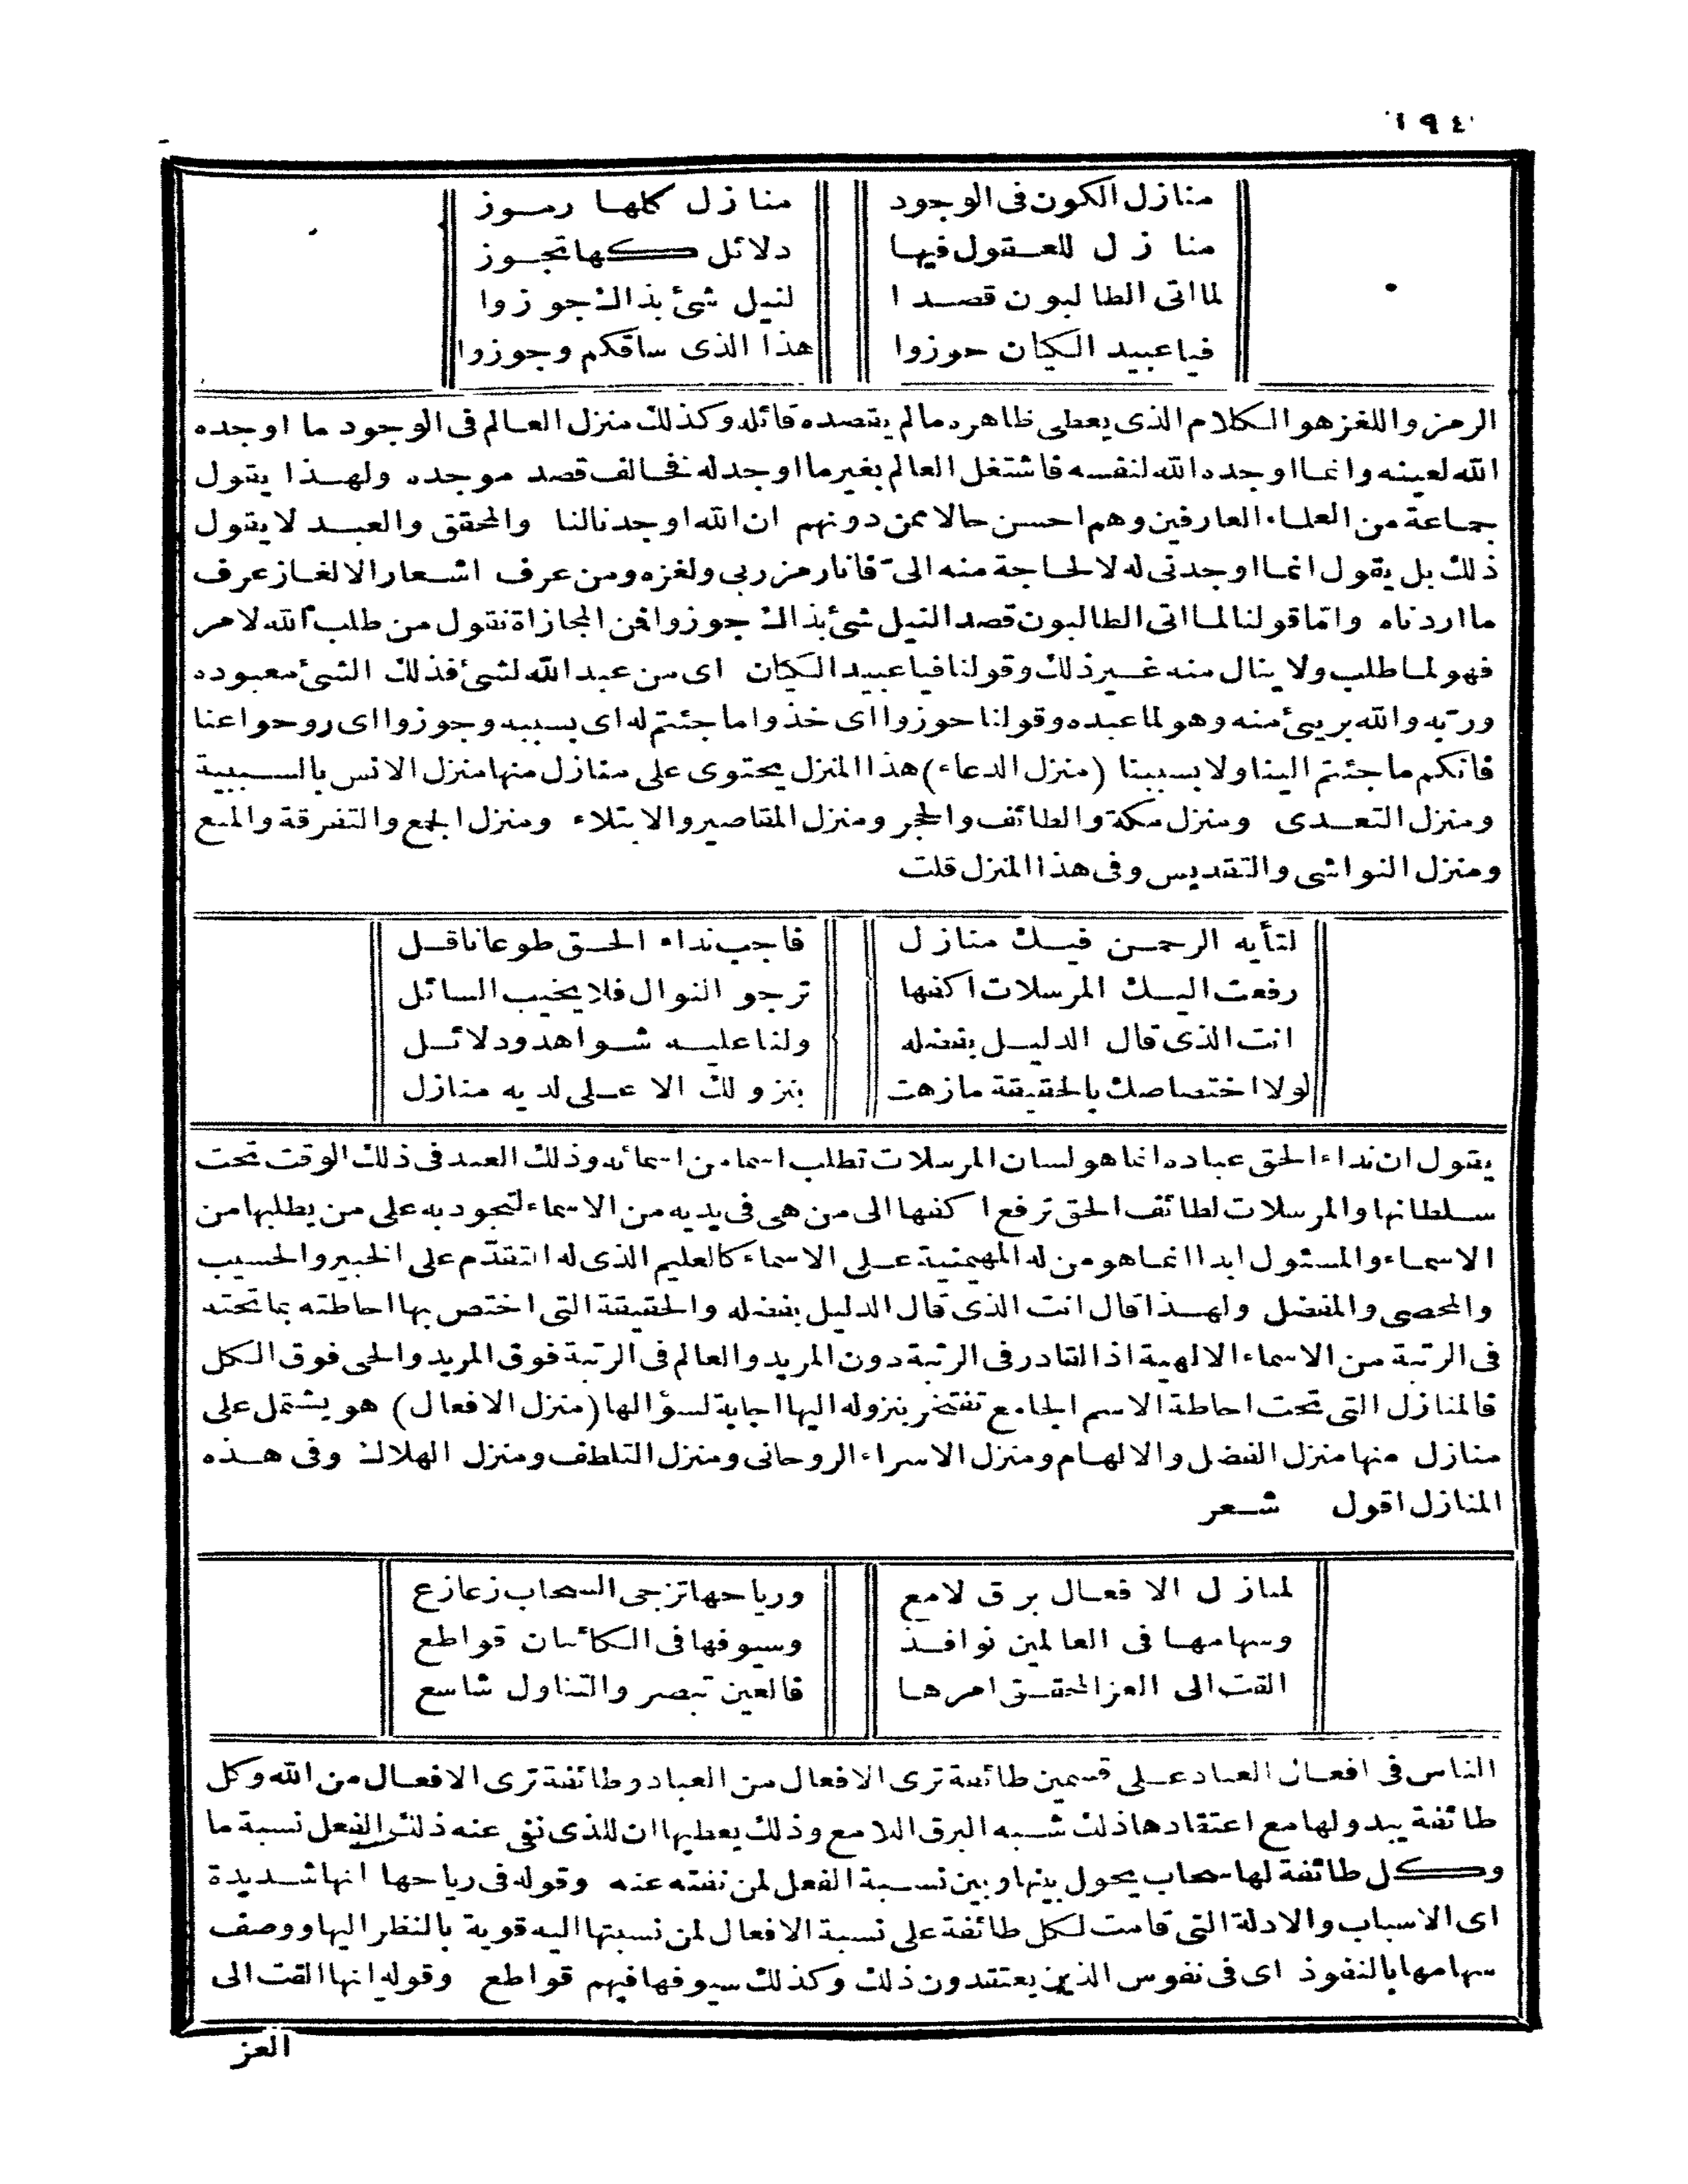 ١٩٤
منازل الكون فى الوجود منازل كلها رموز
منازل للعقول فيها دلائل كلها تجوز
لما اتى الطالبون قصدا لنيل شئ بذاك جوزوا
فيا عبيد الكيان حوزوا هذا الذى ساقكم وجوزوا
الرمز واللغز هو الكلام الذى يعطى ظاهره مالم يقصده قائله وكذلك منزل العالم فى الوجود ما اوجده
الله لعينه وانما اوجده الله لنفسه فاشتغل العالم بغير ما اوجد له فخالف قصد موجده ولهذا يقول
جماعة من العلماء العارفين وهم احسن حالا ممن دونهم ان الله اوجدنا لنا والمحقق والعبد لا يقول
ذلك بل يقول انما اوجدنى له لا لحاجة منه الىّ فانا رمز ربى ولغزه ومن عرف اشعار الالغاز عرف
ما اردناه وامّا قولنا لما اتى الطالبون قصدا لنيل شئ بذاك جوزوا فمن المجازاة نقول من طلب الله لامر
فهو لما طلب ولا ينال منه غير ذلك وقولنا فيا عبيد الكيان اى من عبد الله لشئ فذلك الشئ معبوده
وربّه والله برىء منه وهو لما عبده وقولنا حوزوا اى خذوا ما جئتم له اى بسببه وجوزوا اى روحوا عنا
فانكم ما جئتم الينا ولا بسببنا (منزل الدعاء) هذا المنزل يحتوى على منازل منها منزل الانس بالسببية
ومنزل التعدى ومنزل مكة والطائف والحجر ومنزل المقاصير والابتلاء ومنزل الجمع والتفرقة والمنع
ومنزل النواشى والتقديس وفى هذا المنزل قلت
لتأيه الرحمن فيك منازل فاجب نداء الحق طوعا ناقل
رفعت اليك المرسلات اكفها ترجو النوال فلا يخيب السائل
انت الذى قال الدليل بفضله ولنا عليه شواهد ودلائل
لولا اختصاصك بالحقيقة مازهت بنزولك الاعلى لديه منازل
يقول ان نداء الحق عباده انما هو لسان المرسلات تطلب اسما من اسمائه وذلك العبد فى ذلك الوقت تحت
سلطانها والمرسلات لطائف الحق ترفع اكفها الى من هى فى يديه من الاسماء لتجود به على من يطلبها من
الاسماء والمسئول ابدا انما هو من له المهيمنية على الاسماء كالعليم الذى له التقدّم على الخبير والحسيب
والمحصى والمفضل ولهذا قال انت الذى قال الدليل بفضله والحقيقة التى اختص بها احاطته بما تحته
فى الرتبة من الاسماء الالهية اذ القادر فى الرتبة دون المريد والعالم فى الرتبة فوق المريد والحى فوق الكل
فالمنازل التى تحت احاطة الاسم الجامع تفتخر بنزوله اليها اجابة لسؤالها (منزل الافعال) هو يشتمل على
منازل منها منزل الفضل والالهام ومنزل الاسراء الروحانى ومنزل التلطف ومنزل الهلاك وفى هذه
المنازل اقول شعر
لمنازل الافعال برق لامع ورياحها تزجى السحاب زعازع
وسهامها فى العالمين نوافذ وسيوفها فى الكائنات قواطع
القت الى العز المحقق امرها فالعين تبصر والتناول شاسع
الناس فى افعال العباد على قسمين طائفة ترى الافعال من العباد وطائفة ترى الافعال من الله وكل
طائفة يبدو لها مع اعتقادها ذلك شبه البرق اللامع وذلك يعطيها ان للذى نفى عنه ذلك الفعل نسبة ما
وكل طائفة لها سحاب يحول بينها وبين نسبة الفعل لمن نفته عنه وقوله فى رياحها انها شديدة
اى الاسباب والادلة التى قامت لكل طائفة على نسبة الافعال لمن نسبتها اليه قوية بالنظر اليها ووصف
سهامها بالنفوذ اى فى نفوس الذين يعتقدون ذلك وكذلك سيوفها فيهم قواطع وقوله انها القت الى
العز